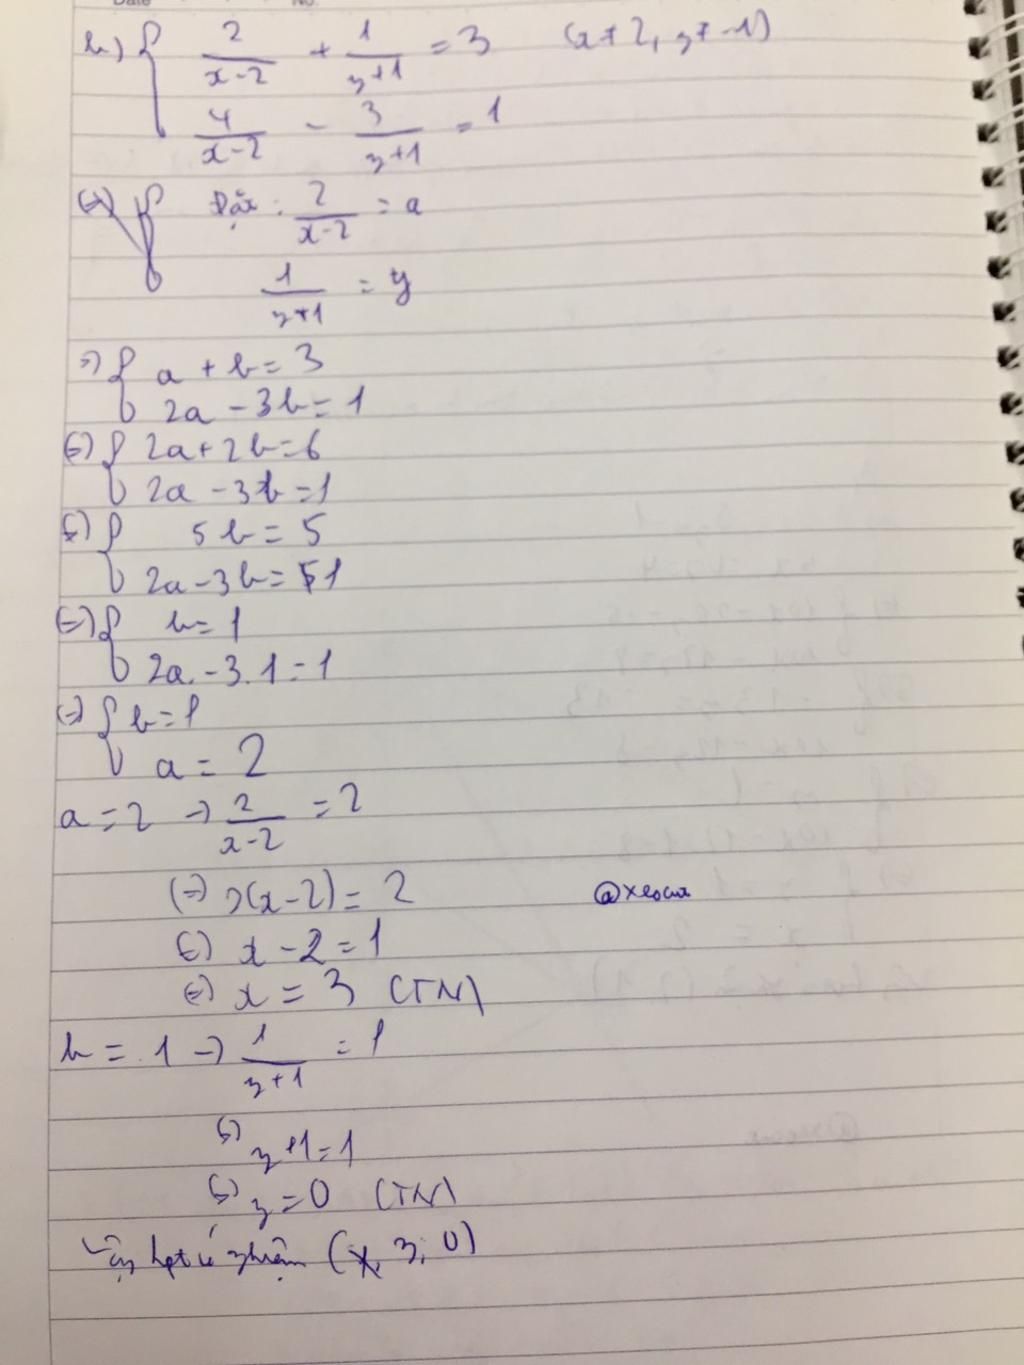 Date No.
b) { 2/(x-2) + 1/(y+1) = 3 (x ≠ 2, y ≠ -1)
4/(x-2) - 3/(y+1) = 1
(=) { Đặt: 2/(x-2) = a
1/(y+1) = y
=) { a + b = 3
2a - 3b = 1
(=) { 2a + 2b = 6
2a - 3b = 1
(=) { 5b = 5
2a - 3b = 1
(=) { b = 1
2a - 3.1 = 1
(=) { b = 1
a = 2
a = 2 -) 2/(x-2) = 2
(=) 2(x-2) = 2
@xeoua
(=) x - 2 = 1
(=) x = 3 (TN)
b = 1 -) 1/(y+1) = 1
(=) y+1 = 1
(=) y = 0 (TN)
Vậy hpt có nghiệm (x, 3; 0)